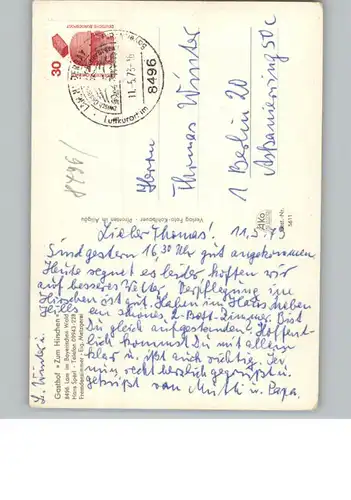 30
DEUTSCHE BUNDESPOST
8496
11.-5.73-16
Luftkurort im
8496/
Herrn
Thomas Winter
1 Berlin 20
Verlag Foto-Kohlbauer · Pfronten im Allgäu
Best.-Nr. 1411
Lieber Thomas! 11.5.73
Sind gestern 16,30 Uhr gut angekommen
Heute regnet es leider hoffen wir
auf besseres Wetter. Verpflegung im
Hirschen ist gut. Haben im Haus neben
ein schönes 2-Bett-Zimmer. Bist
Du gleich aufgestanden. Hoffent-
lich kommst Du mit allem
klar u. ißt auch richtig. Sei
nun recht herzlich gegrüßt u.
geküßt von Mutti u. Papa.
Gasthof »Zum Hirschen«
8496 Lam im Bayerischen Wald
Telefon 09943/238
Fremdenzimmer - Eig. Metzgerei